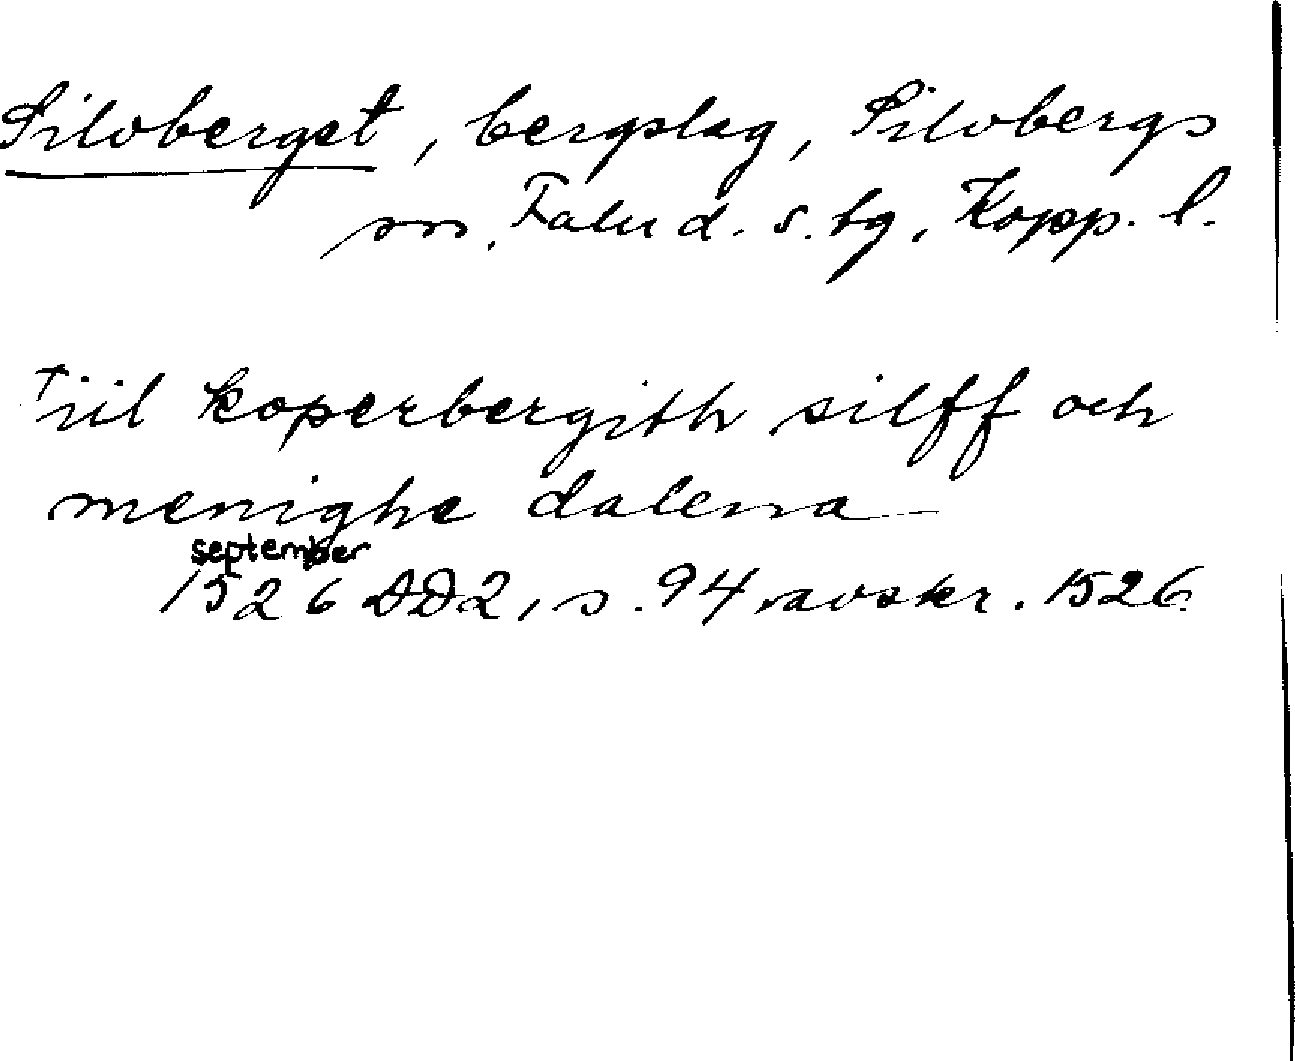 Silvberget, bergslag, Silvbergs
sn, Falu d. s. tg, Kopp. l.
Tiil koperbergith silff och
menighe dalena
september
1526 DD2, s. 94, avskr. 1526.